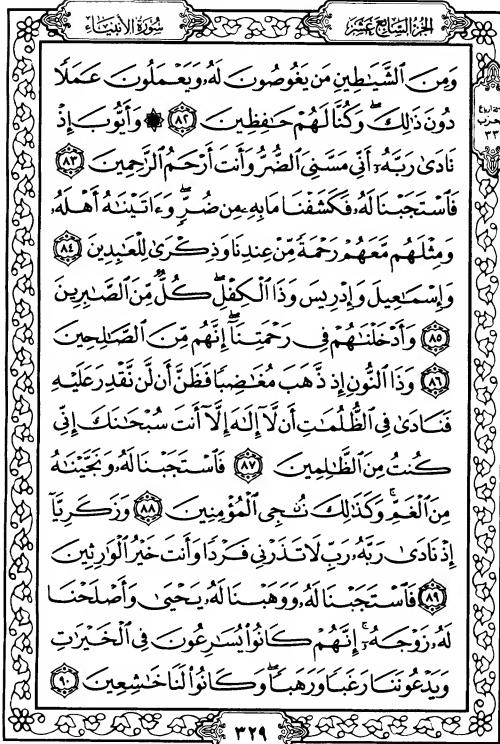 سُورَةُ الأنبيَاء
الجزء السابع عشر
وَمِنَ ٱلشَّيَٰطِينِ مَن يَغُوصُونَ لَهُۥ وَيَعْمَلُونَ عَمَلًا
دُونَ ذَٰلِكَ ۖ وَكُنَّا لَهُمْ حَٰفِظِينَ ٨٢ ۞ وَأَيُّوبَ إِذْ
نَادَىٰ رَبَّهُۥٓ أَنِّى مَسَّنِىَ ٱلضُّرُّ وَأَنتَ أَرْحَمُ ٱلرَّٰحِمِينَ ٨٣
فَٱسْتَجَبْنَا لَهُۥ فَكَشَفْنَا مَا بِهِۦ مِن ضُرٍّ ۖ وَءَاتَيْنَٰهُ أَهْلَهُۥ
وَمِثْلَهُم مَّعَهُمْ رَحْمَةً مِّنْ عِندِنَا وَذِكْرَىٰ لِلْعَٰبِدِينَ ٨٤
وَإِسْمَٰعِيلَ وَإِدْرِيسَ وَذَا ٱلْكِفْلِ ۖ كُلٌّ مِّنَ ٱلصَّٰبِرِينَ
٨٥ وَأَدْخَلْنَٰهُمْ فِى رَحْمَتِنَآ ۖ إِنَّهُم مِّنَ ٱلصَّٰلِحِينَ
٨٦ وَذَا ٱلنُّونِ إِذ ذَّهَبَ مُغَٰضِبًا فَظَنَّ أَن لَّن نَّقْدِرَ عَلَيْهِ
فَنَادَىٰ فِى ٱلظُّلُمَٰتِ أَن لَّآ إِلَٰهَ إِلَّآ أَنتَ سُبْحَٰنَكَ إِنِّى
كُنتُ مِنَ ٱلظَّٰلِمِينَ ٨٧ فَٱسْتَجَبْنَا لَهُۥ وَنَجَّيْنَٰهُ
مِنَ ٱلْغَمِّ ۚ وَكَذَٰلِكَ نُۨجِى ٱلْمُؤْمِنِينَ ٨٨ وَزَكَرِيَّآ
إِذْ نَادَىٰ رَبَّهُۥ رَبِّ لَا تَذَرْنِى فَرْدًا وَأَنتَ خَيْرُ ٱلْوَٰرِثِينَ
٨٩ فَٱسْتَجَبْنَا لَهُۥ وَوَهَبْنَا لَهُۥ يَحْيَىٰ وَأَصْلَحْنَا
لَهُۥ زَوْجَهُۥٓ ۚ إِنَّهُمْ كَانُوا۟ يُسَٰرِعُونَ فِى ٱلْخَيْرَٰتِ
وَيَدْعُونَنَا رَغَبًا وَرَهَبًا ۖ وَكَانُوا۟ لَنَا خَٰشِعِينَ ٩٠
٣٢٩